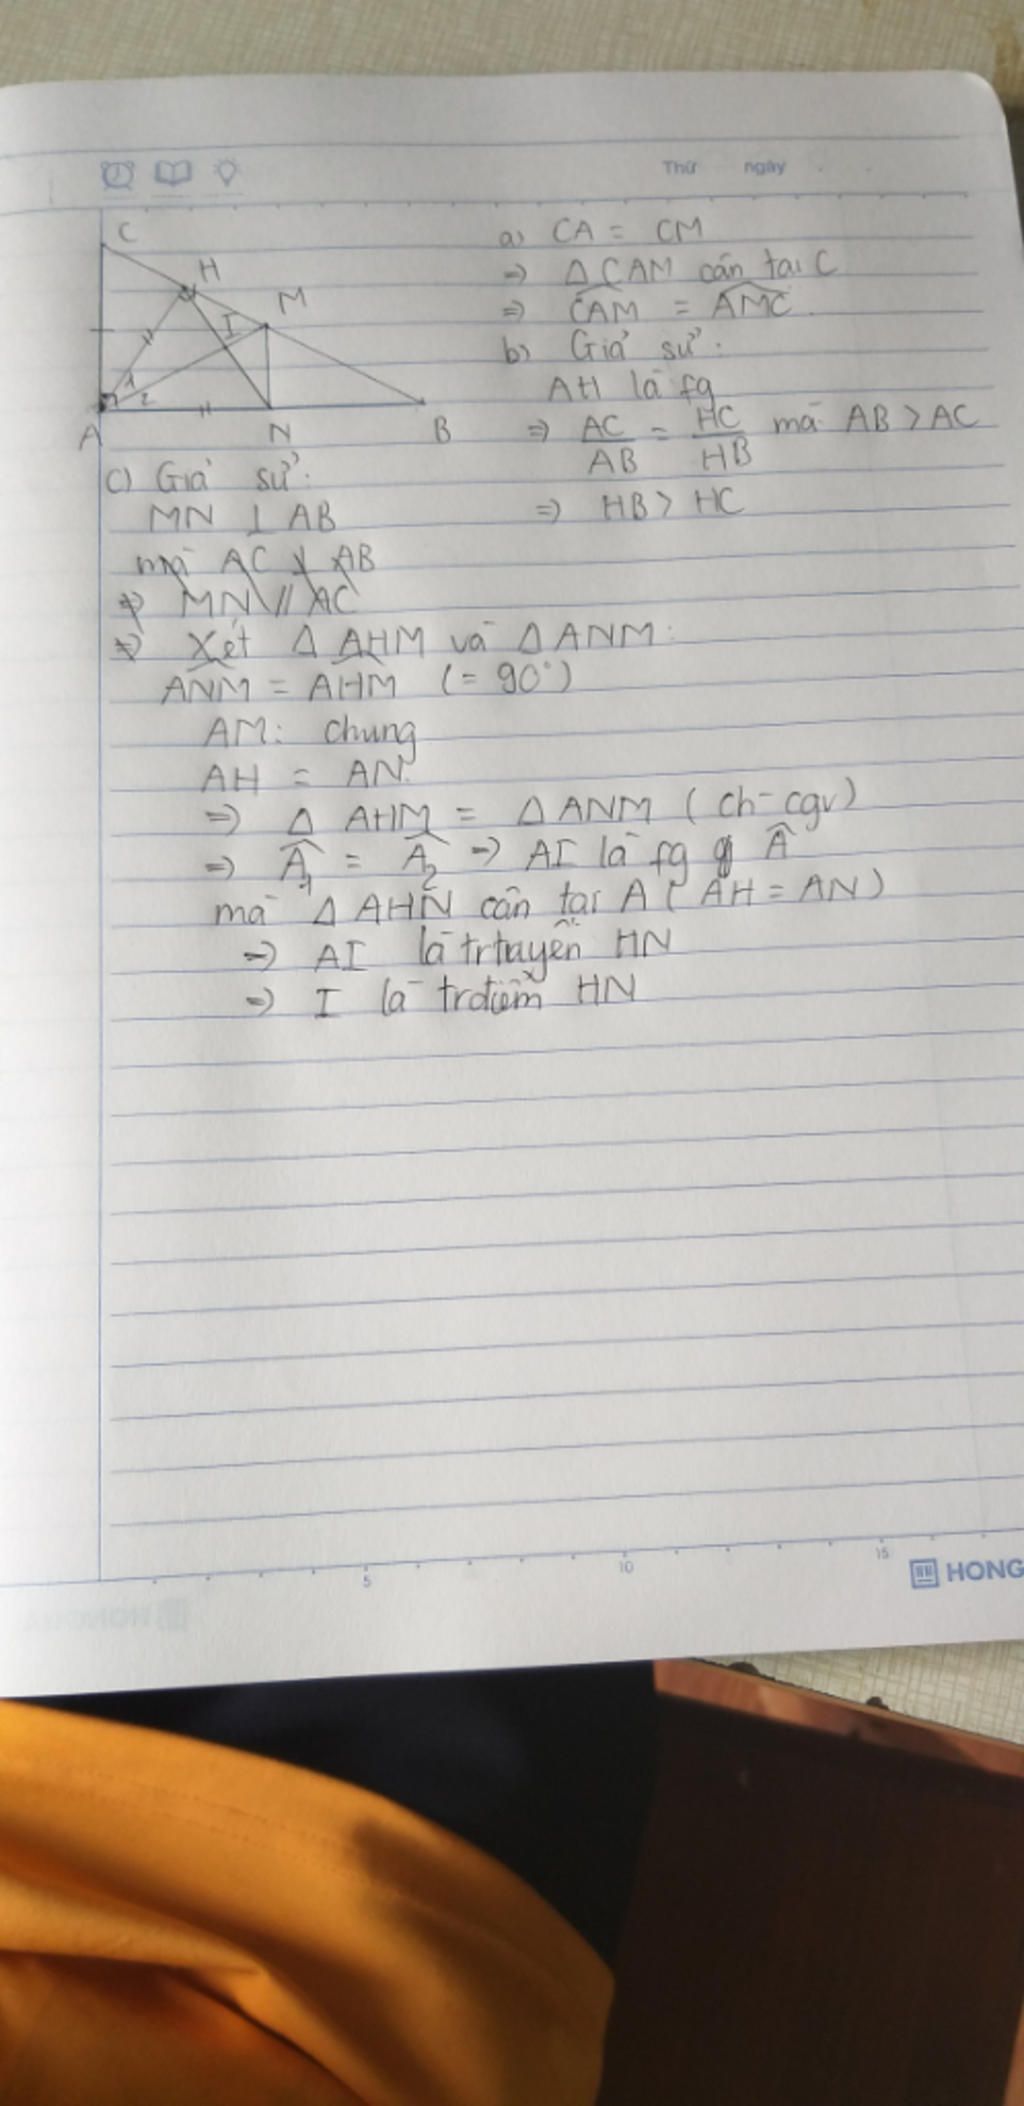 Thứ ngày
C
H
M
I
1
2
A
N
B
a) CA = CM
=> Δ CAM cân tại C
=> CAM = AMC.
b) Giả sử:
AH là fg
=> AC/AB = HC/HB mà AB > AC
=> HB > HC
c) Giả sử:
MN ⊥ AB
mà AC ⊥ AB
=> MN // AC
=> Xét Δ AHM và Δ ANM:
ANM = AHM (= 90°)
AM: chung
AH = AN.
=> Δ AHM = Δ ANM (ch-cgv)
=> A1 = A2 => AI là fg A
mà Δ AHN cân tại A (AH = AN)
=> AI là trtuyến HN
=> I là trđiểm HN
5 10 15
HONG